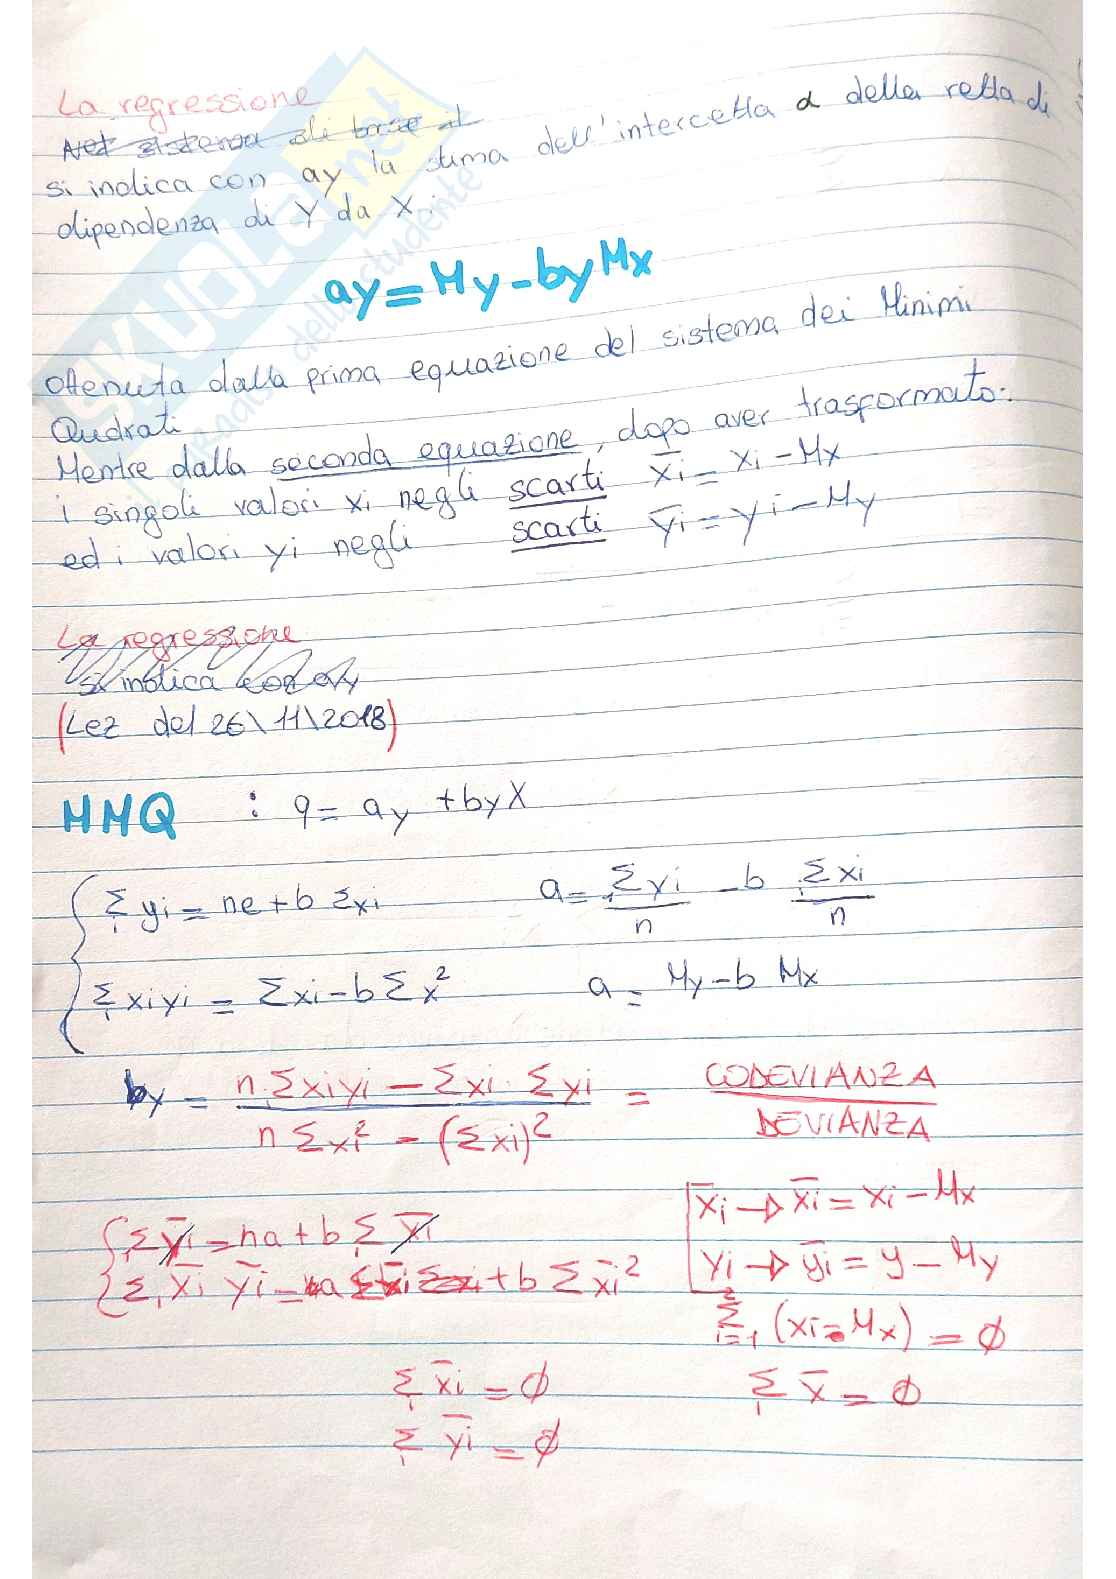 La regressione
Nel sistema di base il
si indica con ay la stima dell'intercetta α della retta di
dipendenza di Y da X.
ay = My - by Mx
Ottenuta dalla prima equazione del sistema dei Minimi
Qudrati
Mentre dalla seconda equazione, dopo aver trasformato:
i singoli valori xi negli scarti x̄i = xi - Mx
ed i valori yi negli scarti ȳi = yi - My
La regressione
si indica con ay
(Lez del 26\11\2018)
MMQ : q = ay + by X
Σ yi = ne + b Σxi a = Σ yi / n - b Σ xi / n
Σ xi yi = Σ xi - b Σ x² a = My - b Mx
by = n Σ xi yi - Σ xi · Σ yi / n Σ xi² - (Σ xi)² = CODEVIANZA / DEVIANZA
x̄i → x̄i = xi - Mx
Σ ȳi = na + b Σ x̄i
yi → ȳi = y - My
Σ x̄i ȳi = a Σ x̄i + b Σ x̄i²
Σ i=1 (xi - Mx) = ∅
Σ x̄i = ∅ Σ x̄ = ∅
Σ ȳi = ∅
SKUOLA.net
il paradiso dello studente